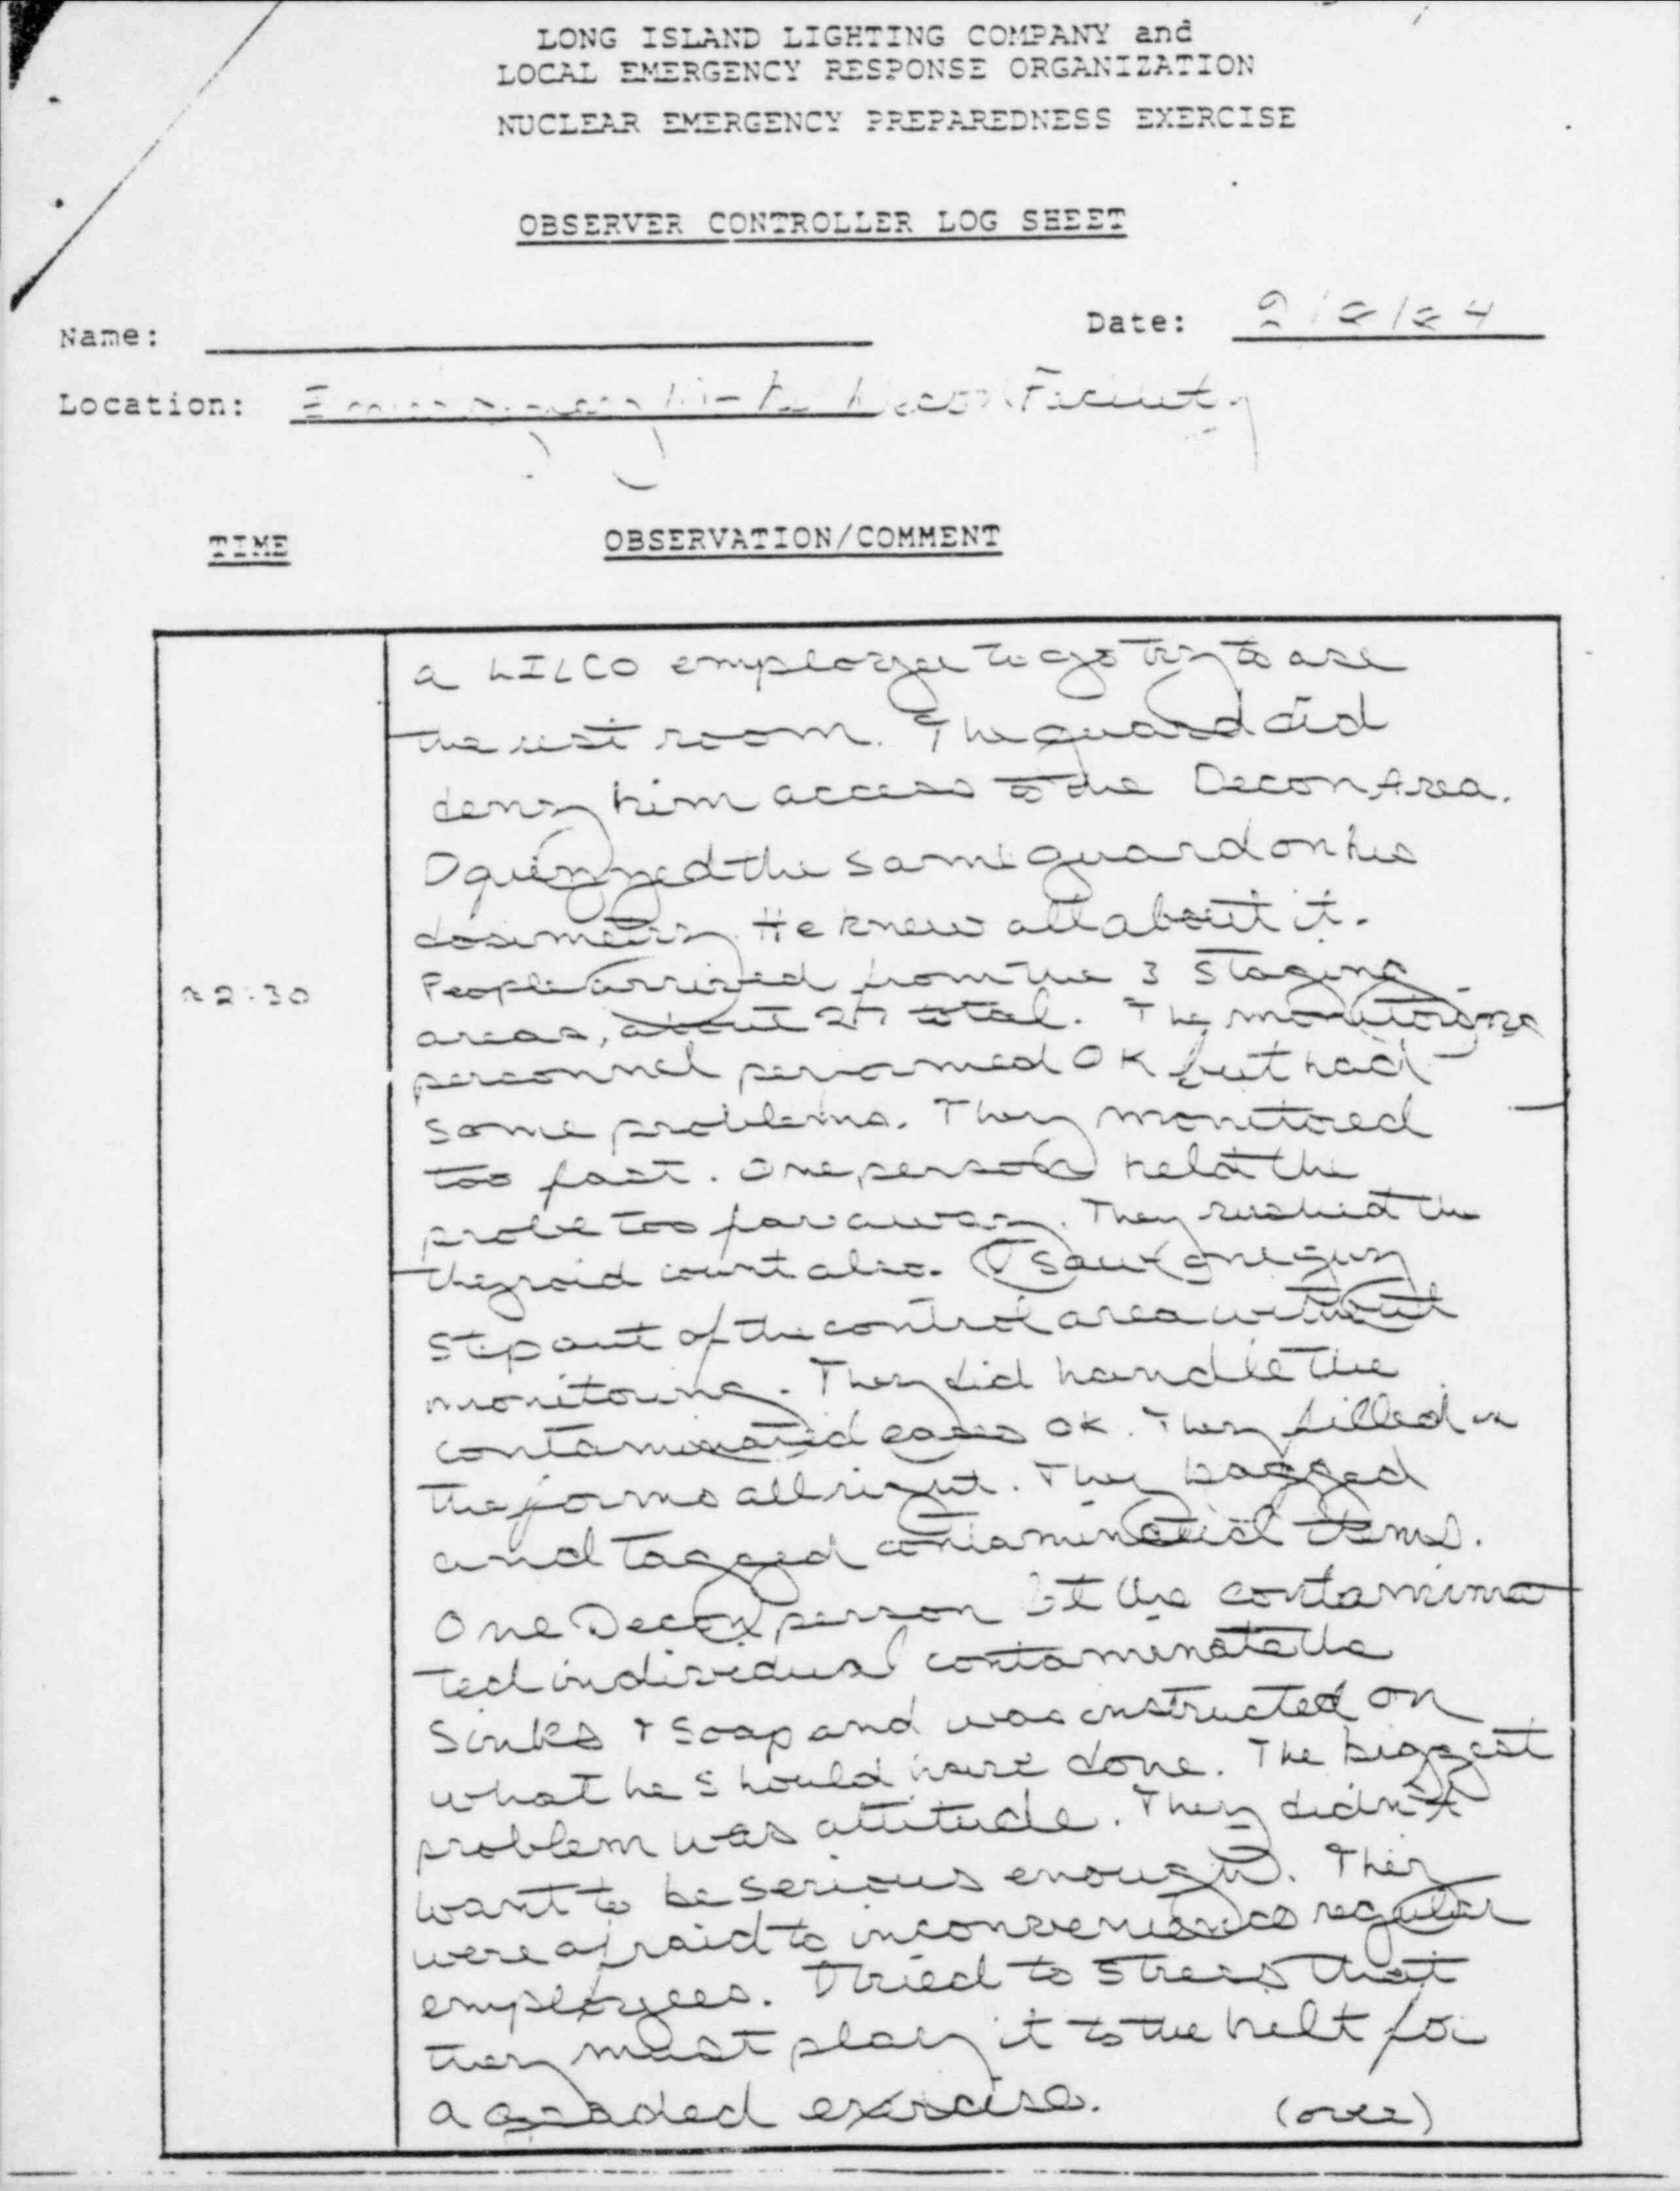 LONG ISLAND LIGHTING COMPANY and
LOCAL EMERGENCY RESPONSE ORGANIZATION
NUCLEAR EMERGENCY PREPAREDNESS EXERCISE
OBSERVER CONTROLLER LOG SHEET
Name: Date:
Location: Emergency Decon Facility
TIME OBSERVATION/COMMENT
a LILCO employee to go try to use
the rest room. The guard did
deny him access to the Decon Area.
I quizzed the same guard on his
dosimetry. He knew all about it.
≈2:30 People arrived from the 3 Staging
areas, about 27 total. The monitoring
personnel performed OK but had
some problems. They monitored
too fast. One person held the
probe too far away. They rushed the
thyroid count also. I saw one guy
step out of the control area without
monitoring. They did handle the
contaminated cases OK. They filled in
the forms all right. They bagged
and tagged contaminated items.
One Decon person let the contamina
ted individual contaminate the
sinks + soap and was instructed on
what he should have done. The biggest
problem was attitude. They didn't
want to be serious enough. They
were afraid to inconvenience regular
employees. I tried to stress that
they must play it to the hilt for
a graded exercise. (over)